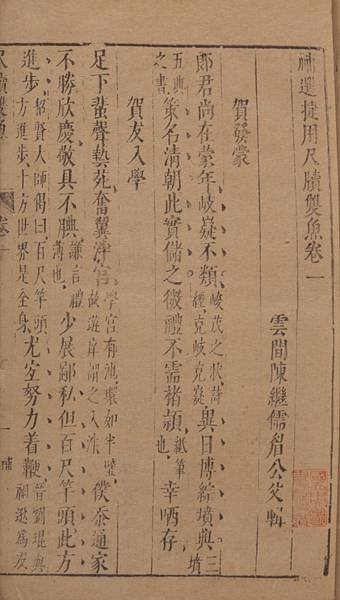 補選捷用尺牘雙魚卷一
雲間陳繼儒眉公父輯
賀發蒙
郎君尚在蒙年岐嶷不類峻茂之狀詩經克岐克嶷異日博綜墳典三墳
五典之書策名清朝此實儲之微禮不需楮穎紙筆也幸哂存
賀友入學
足下蜚聲藝苑奮翼泮宮學宮有池環如半璧故遊庠謂之入泮僕忝通家
不勝欣慶敬具不腆謙言禮薄也少展鄙私但百尺竿頭此方
進步招賢大師偈曰百尺竿頭方進步十方世界是全身尤宜努力着鞭晉劉琨與祖逖為友
尺牘雙魚
卷一
一
補